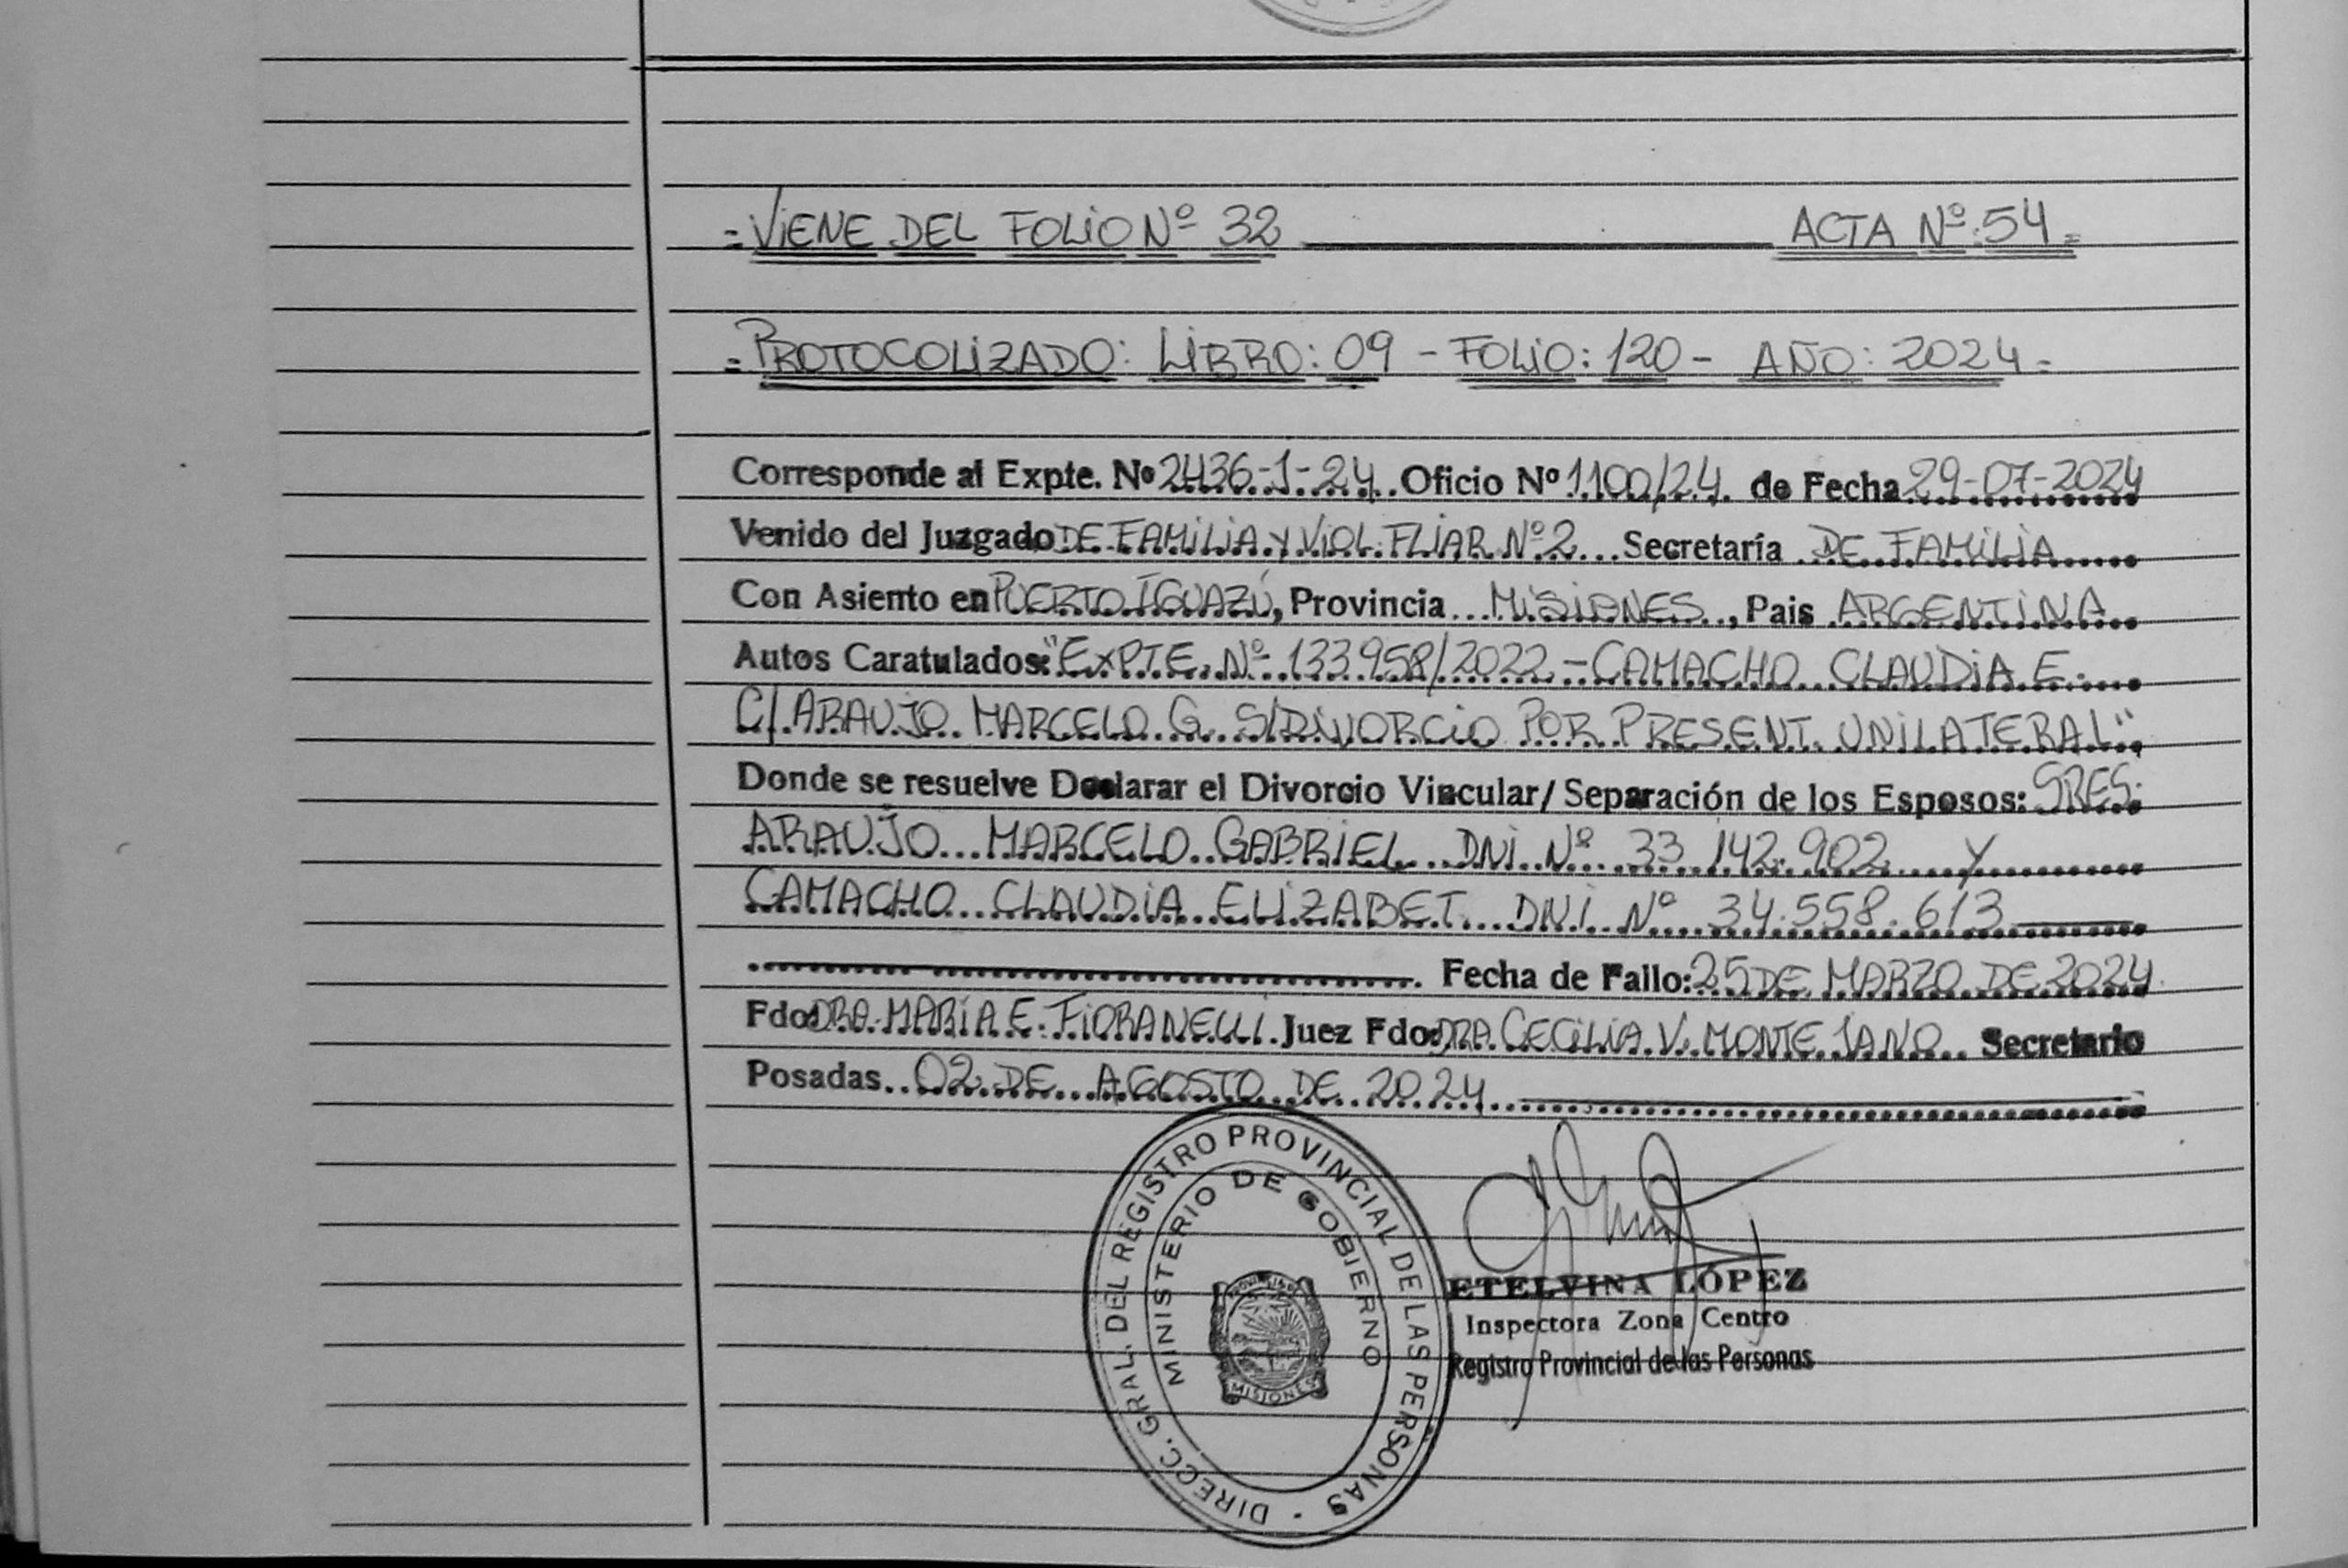 = VIENE DEL FOLIO Nº 32 ACTA Nº 54 =
= PROTOCOLIZADO: LIBRO: 09 - FOLIO: 120 - AÑO: 2024 =
Corresponde al Expte. Nº 2436-J-24 Oficio Nº 1100/24 de Fecha 29-07-2024
Venido del Juzgado DE FAMILIA Y VIOL. FLIAR Nº 2 Secretaría DE FAMILIA
Con Asiento en PUERTO IGUAZÚ, Provincia MISIONES, Pais ARGENTINA
Autos Caratulados: "EXPTE. Nº 133958/2022 - CAMACHO CLAUDIA E.
C/ ARAUJO MARCELO G. S/DIVORCIO POR PRESENT. UNILATERAL"
Donde se resuelve Declarar el Divorcio Vincular/ Separación de los Esposos: SRES.
ARAUJO MARCELO GABRIEL DNI Nº 33.142.902 Y
CAMACHO CLAUDIA ELIZABET DNI Nº 34.558.613
Fecha de Fallo: 25 DE MARZO DE 2024
Fdo: DRA. MARÍA E. FIORANELLI Juez Fdo: DRA. CECILIA V. MONTEJANO Secretario
Posadas 02 DE AGOSTO DE 2024
DIRECC. GRAL. DEL REGISTRO PROVINCIAL DE LAS PERSONAS
MINISTERIO DE GOBIERNO
MISIONES
ETELVINA LÓPEZ
Inspectora Zona Centro
Registro Provincial de las Personas